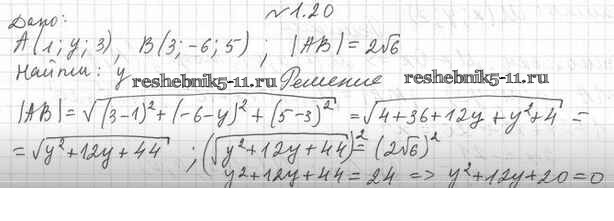 №1.20
Дано:
A(1; y; 3), B(3; -6; 5); |AB| = 2√6
Найти: y
reshebnik5-11.ru Решение reshebnik5-11.ru
|AB| = √((3-1)² + (-6-y)² + (5-3)²) = √(4+36+12y+y²+4) =
= √(y²+12y+44) ; (√(y²+12y+44))² = (2√6)²
y²+12y+44 = 24 => y²+12y+20=0